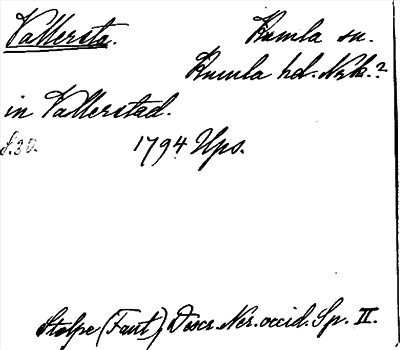 Vallersta. Kumla sn.
Kumla hd. Nrk.?
in Vallerstad.
S. 30. 1794 Ups.
Stolpe (Fant), Descr. Ner. occid. Sp. II.